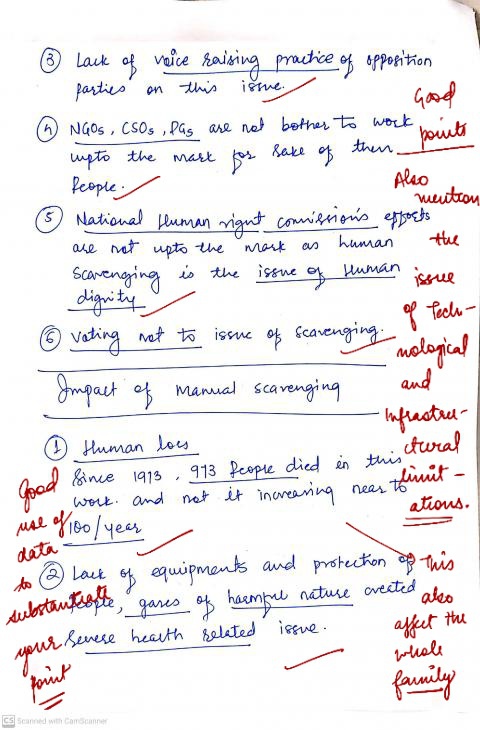 ③ Lack of voice raising practice of opposition
parties on this issue.
④ NGOs, CSOs, PGs are not bother to work
upto the mark for sake of them
People.
⑤ National Human right comission's efforts
are not upto the mark as human
scavenging is the issue of Human
dignity
⑥ Voting not to issue of scavenging.
Good
points
Also
mention
the
issue
of Tech-
nological
and
Infrastru-
ctural
limit-
ations.
Impact of manual scavenging
① Human loss
Since 1913, 973 People died in this
work. and not it increasing near to
100/year
Good
use of
data
to
substantiate
your
point
② Lack of equipments and protection of
People, gases of harmful nature created
Severe health related issue.
This
also
affect the
whole
family
CS Scanned with CamScanner